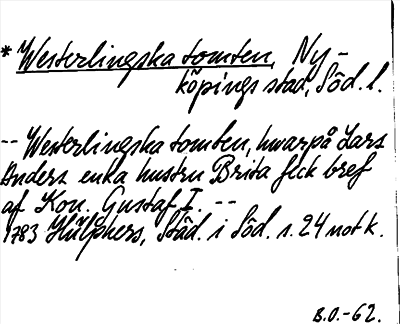 * Westerlingska tomten, Ny-
köpings stad, Söd. l.
-- Westerlingska tomten, hwarpå Lars
Anders enka hustru Brita fick bref
af Kon. Gustaf I. --
1783 Hülphers, Städ. i Söd. s. 24 not k.
B.O.-62.